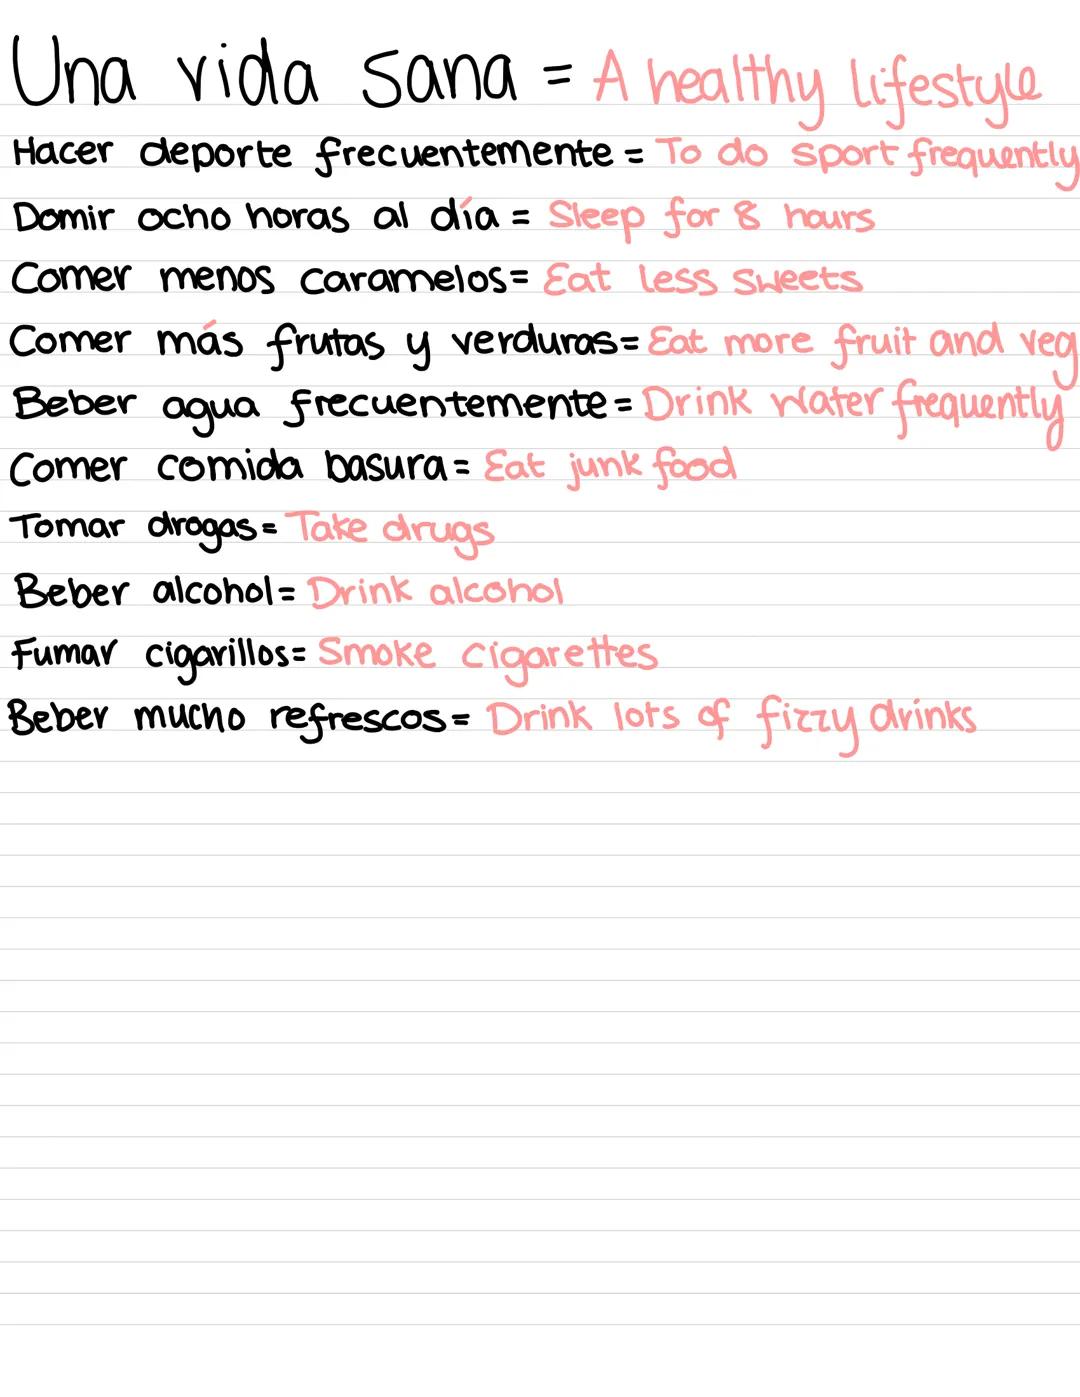 Una vida sana = A healthy lifestyle
Hacer deporte frecuentemente = To do sport frequently
Domir ocho horas al día = Sleep for 8 hours
Comer menos caramelos= Eat less sweets
Comer más frutas y verduras= Eat more fruit and veg
Beber agua frecuentemente = Drink water frequently
Comer comida basura= Eat junk food
Tomar drogas= Take drugs
Beber alcohol= Drink alcohol
Fumar cigarillos= Smoke cigarettes
Beber mucho refrescos= Drink lots of fizzy drinks